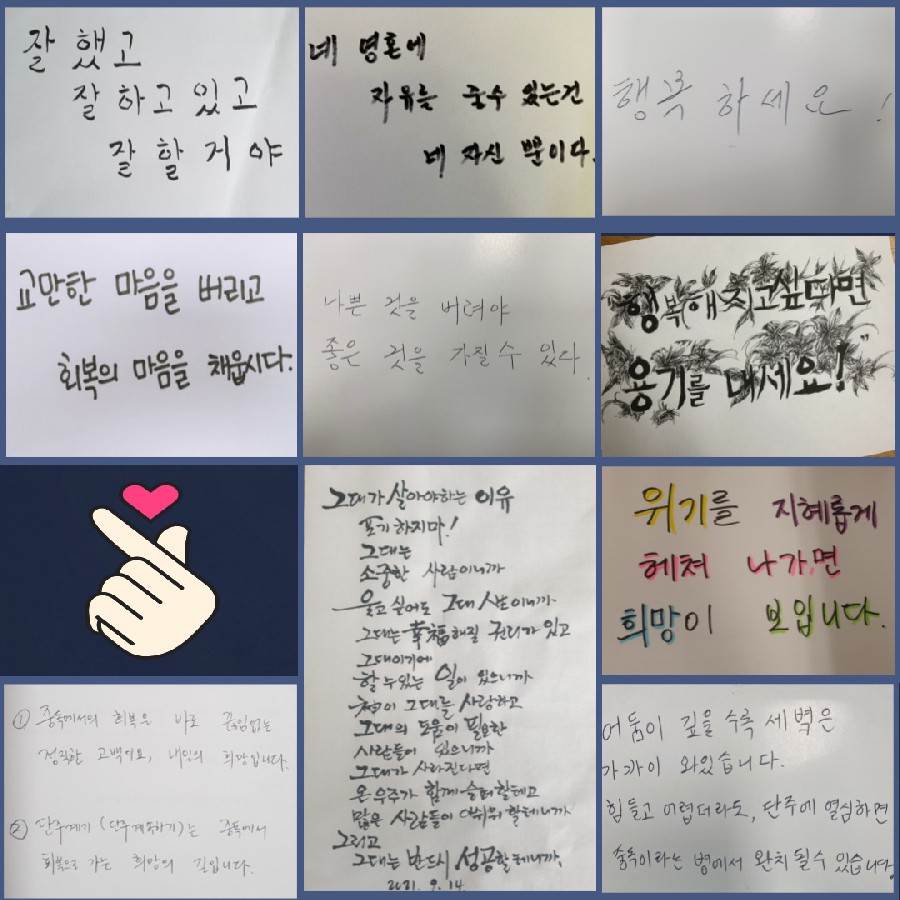 잘 했고
잘 하고 있고
잘 할 거야
네 영혼에
자유를 줄수 있는건
네 자신 뿐이다.
행복 하세요!
교만한 마음을 버리고
회복의 마음을 채웁시다.
나쁜 것을 버려야
좋은 것을 가질 수 있다.
행복해 지고 싶다면
용기를 내세요!"
그대가 살아야하는 이유
포기 하지마!
그대는
소중한 사람이니까
울고 싶어도 그대 人生이니까
그대는 幸福해질 권리가 있고
그대이기에
할 수 있는 일이 있으니까
神이 그대를 사랑하고
그대의 도움이 필요한
사람들이 있으니까
그대가 사라진다면
온 우주가 함께 슬퍼할테고
많은 사람들이 아쉬워 할테니까
그리고
그대는 반드시 성공할테니까.
2021. 9. 14.
위기를 지혜롭게
헤쳐 나가면
희망이 보입니다.
① 중독에서의 회복은 바로 끊임없는
정직한 고백이요, 내일의 희망입니다.
② 단주계기(단주계속하기)는 중독에서
회복으로 가는 희망의 길입니다.
어둠이 깊을 수록 새벽은
가까이 와있습니다.
힘들고 어렵더라도, 단주에 열심하면
중독이라는 병에서 완치 될수 있습니다